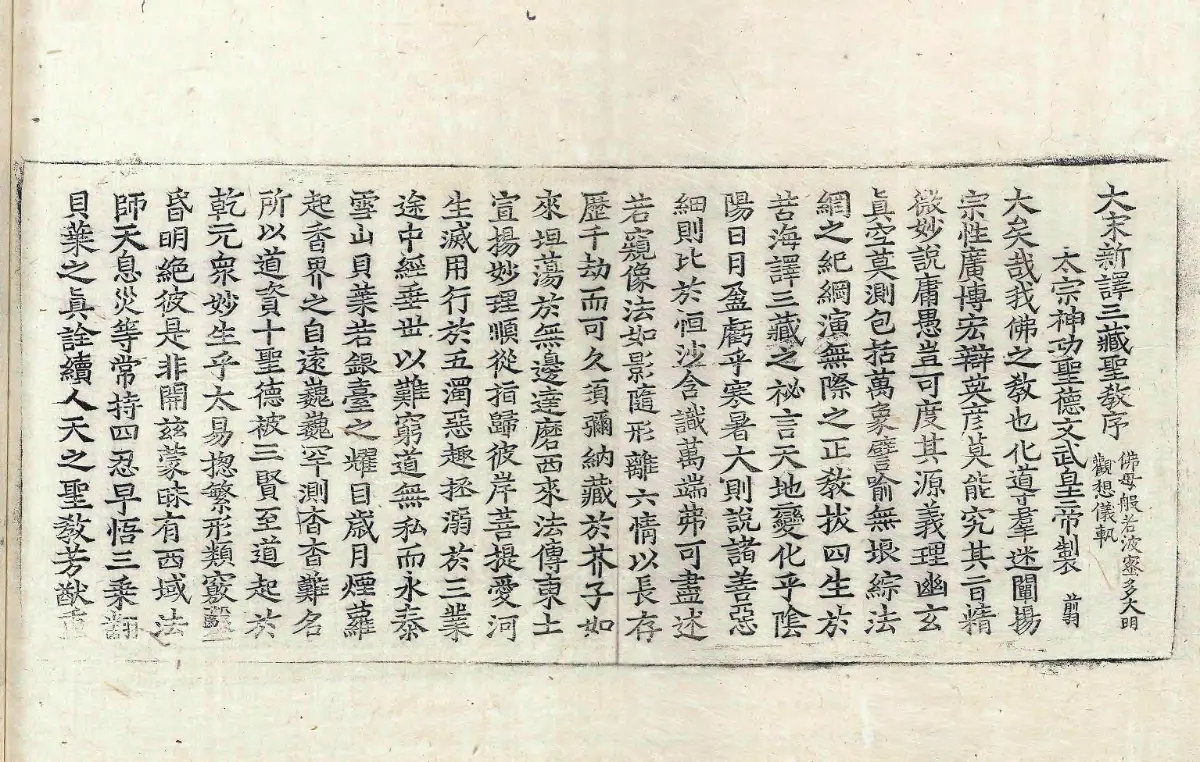 大宋新譯三藏聖教序
佛母般若波羅蜜多大明
觀想儀軌
太宗神功聖德文武皇帝製
翦
大矣哉我佛之教也化道羣迷闡揚
宗性廣博宏辯英彦莫能究其旨精
微妙說庸愚豈可度其源義理幽玄
眞空莫測包括萬象譬喻無垠綜法
網之紀綱演無際之正教拔四生於
苦海譯三藏之祕言天地變化乎陰
陽日月盈虧乎寒暑大則說諸善惡
細則比於恒沙含識萬端弗可盡述
若窺像法如影隨形離六情以長存
歷千劫而可久須彌納藏於芥子如
來坦蕩於無邊達磨西來法傳東土
宣揚妙理順從指歸彼岸菩提愛河
生滅用行於五濁惡趣拯溺於三業
途中經垂世以難窮道無私而永泰
雪山貝葉若銀臺之耀目歲月煙蘿
起香界之自遠巍巍罕測杳杳難名
所以道資十聖德被三賢至道起於
乾元衆妙生乎太易揔繁形類竅鑿
昏明絕彼是非開玆蒙昧有西域法
師天息災等常持四忍早悟三乘翻
貝葉之眞詮續人天之聖教芳猷重